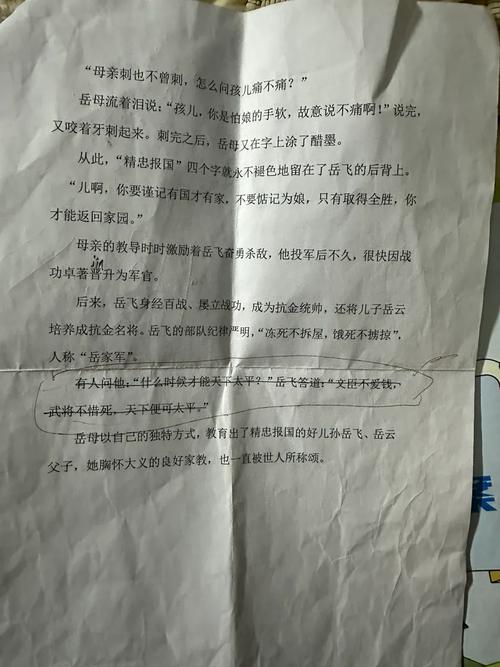 “母亲刺也不曾刺，怎么问孩儿痛不痛？”
岳母流着泪说：“孩儿，你是怕娘的手软，故意说不痛啊！”说完，
又咬着牙刺起来。刺完之后，岳母又在字上涂了醋墨。
从此，“精忠报国”四个字就永不褪色地留在了岳飞的后背上。
“儿啊，你要谨记有国才有家，不要惦记为娘，只有取得全胜，你
才能返回家园。”
母亲的教导时时激励着岳飞奋勇杀敌，他投军后不久，很快因战
jìn
功卓著晋升为军官。
后来，岳飞身经百战、屡立战功，成为抗金统帅，还将儿子岳云
培养成抗金名将。岳飞的部队纪律严明，“冻死不拆屋，饿死不掳掠”，
人称“岳家军”。
有人问他：“什么时候才能天下太平？”岳飞答道：“文臣不爱钱，
武将不惜死，天下便可太平。”
岳母以自己的独特方式，教育出了精忠报国的好儿孙岳飞、岳云
父子，她胸怀大义的良好家教，也一直被世人所称颂。